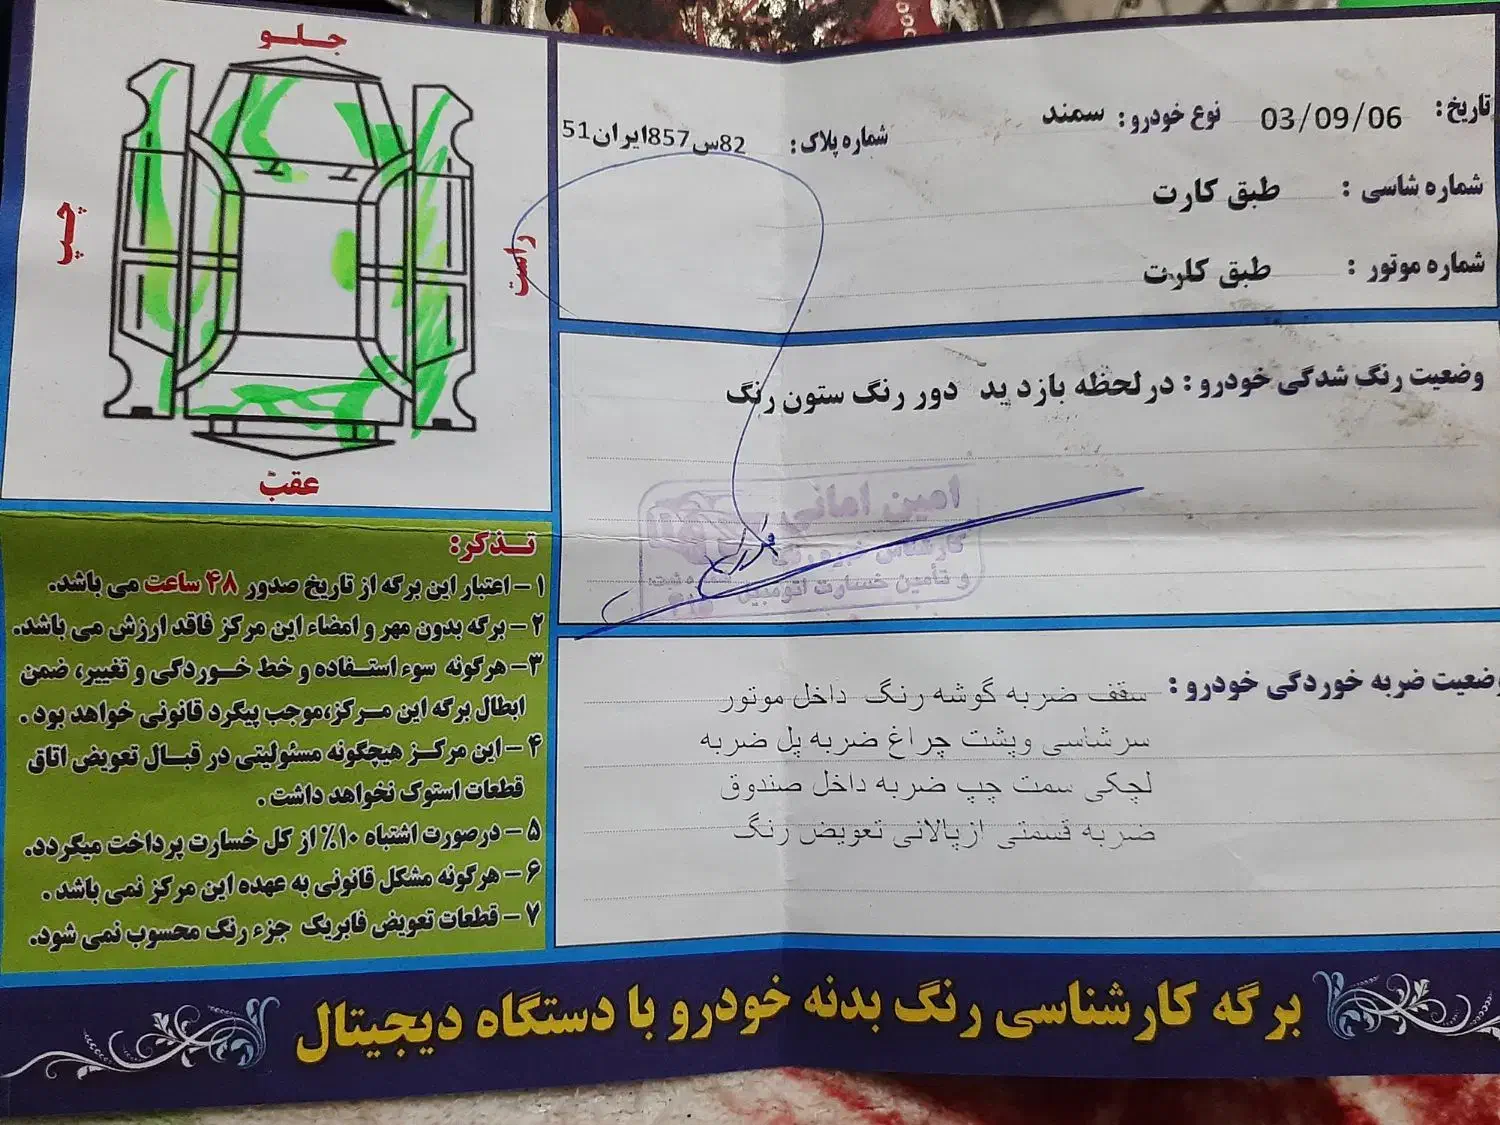 تاریخ: 03/09/06 نوع خودرو: سمند شماره پلاک: 82س857ایران51
شماره شاسی: طبق کارت
شماره موتور: طبق کلرت
وضعیت رنگ شدگی خودرو: درلحظه بازد ید دور رنگ ستون رنگ
امین امانی
کارشناس خبره رنگ
و تأمین خسارت اتومبیل
وضعیت ضربه خوردگی خودرو: سقف ضربه گوشه رنگ داخل موتور
سرشاسی وپشت چراغ ضربه پل ضربه
لچکی سمت چپ ضربه داخل صندوق
ضربه قسمتی ازپالانی تعویض رنگ
جلو
چپ
راست
عقب
تذکر:
۱- اعتبار این برگه از تاریخ صدور ۴۸ ساعت می باشد.
۲- برگه بدون مهر و امضاء این مرکز فاقد ارزش می باشد.
۳- هرگونه سوء استفاده و خط خوردگی و تغییر، ضمن
ابطال برگه این مرکز،موجب پیگرد قانونی خواهد بود.
۴- این مرکز هیچگونه مسئولیتی در قبال تعویض اتاق
قطعات استوک نخواهد داشت.
۵- درصورت اشتباه ۱۰٪ از کل خسارت پرداخت میگردد.
۶- هرگونه مشکل قانونی به عهده این مرکز نمی باشد.
۷- قطعات تعویض فابریک جزء رنگ محسوب نمی شود.
برگه کارشناسی رنگ بدنه خودرو با دستگاه دیجیتال